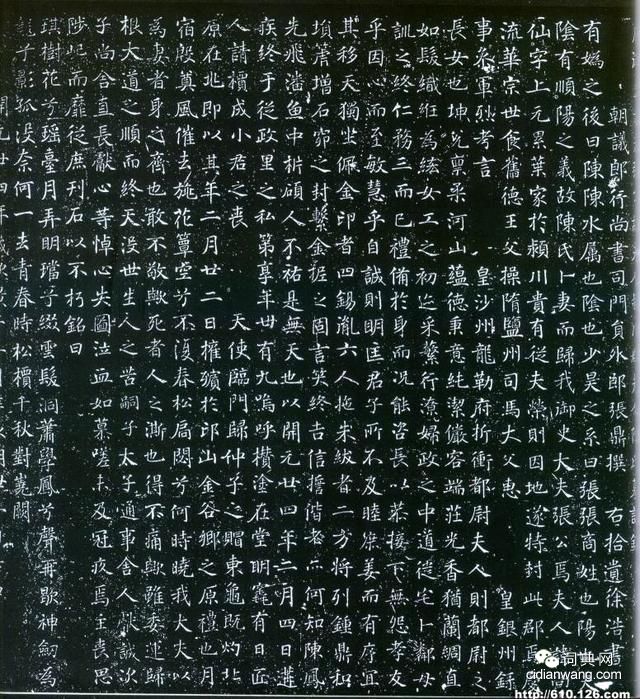 朝議郎行尚書司門員外郎張鼎撰 右拾遺徐浩書
有媯之後曰陳陳水屬也陰也少昊之系曰張張商姓也陽
陰有順陽之義故陳氏卜妻而歸我御史大夫張公焉夫人諱尚
仙字上元累葉家於潁川貴有從夫榮則因地遂特封此郡焉
流華宗世食舊德王父操隋鹽州司馬大父惠 皇銀州錄
事參軍烈考言 皇沙州龍勒府折衝都尉夫人則都尉之
長女也坤兌稟柔河山蘊德秉意純潔儼容端莊光香猶蘭綢直
如髮織絍為紘女工之初迩采蘩行潦婦政之中道徙宅卜鄰母
訓之終仁務三而已禮備於身而況能咨長以恭接下無怨孝友
乎因心而至敏慧乎自誠則明匡君子所不及睦娣姜而有序宜
其移天獨坐佩金印者四錫胤六人拖朱紱者二方將列鍾鼎和
塤篪增石窌之封繫金柅之固言笑終吉信誓偕老何知陳鳳
先飛潘魚中析碩人不祐是無天也以開元廿四年二月四日遘
疾終于從政里之私第享年卌有九嗚呼攢塗在堂明竁有日面
人請櫝成小君之喪 天使臨門歸仲子之賵東龜既灼北
原在兆即以其年二月廿二日擁殯於邙山金谷鄉之原禮也月
宿殷奠風催去旐花蕈空兮不復春松扃閟兮何時曉我大夫以
為妻者身之齊也敢不敬歟死者人之澌也得不痛歟雖委運歸
根大道之順而終天沒世生人之苦嗣子太子通事舍人獻誠次
子尚舍直長獻心等悼心失圖泣血如慕嗟未及冠疚焉主喪思
陟屺而靡從庶刊石以不朽銘曰
琪樹花兮瑶臺月弄明璫兮綴雲髮洞蕭學鳳兮聲再歇神劍為
龍子影孤没奈何一去青春時松檟千秋對嵩闕
词典网
cidianwang.com
http://610.126.com